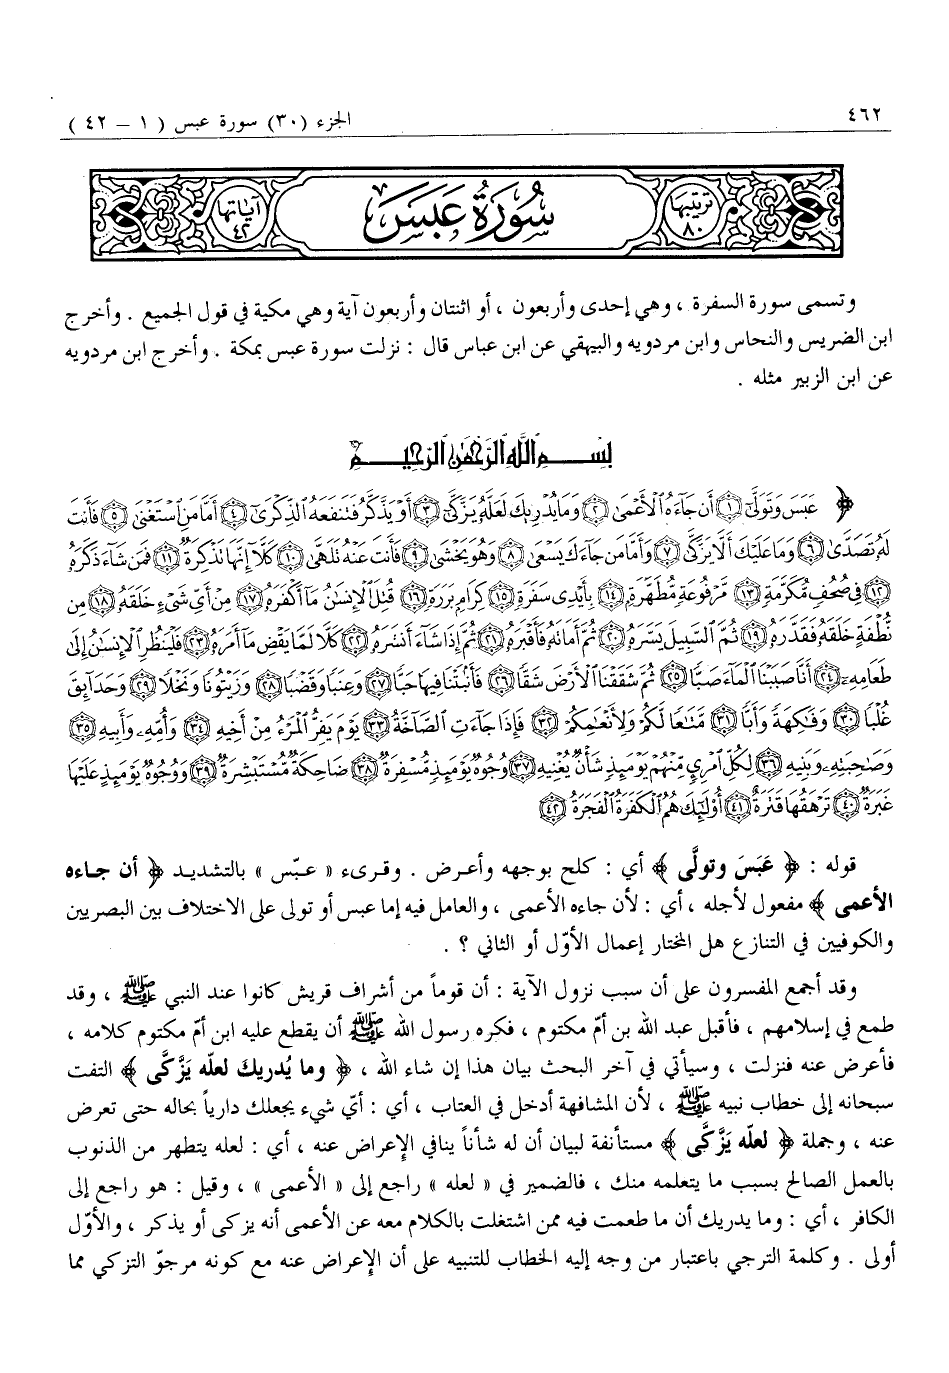 ٤٦٢
الجزء (٣٠) سورة عبس ( ١ – ٤٢ )
ترتيبها ٨٠
سُورَةُ عَبَسَ
آياتها ٤٢
وتسمى سورة السفرة ، وهي إحدى وأربعون ، أو اثنتان وأربعون آية وهي مكية في قول الجميع . وأخرج
ابن الضريس والنحاس وابن مردويه والبيهقي عن ابن عباس قال : نزلت سورة عبس بمكة . وأخرج ابن مردويه
عن ابن الزبير مثله .
بِسْمِ اللَّهِ الرَّحْمَٰنِ الرَّحِيمِ
﴿ عَبَسَ وَتَوَلَّىٰٓ ١ أَن جَآءَهُ ٱلْأَعْمَىٰ ٢ وَمَا يُدْرِيكَ لَعَلَّهُۥ يَزَّكَّىٰٓ ٣ أَوْ يَذَّكَّرُ فَتَنفَعَهُ ٱلذِّكْرَىٰٓ ٤ أَمَّا مَنِ ٱسْتَغْنَىٰ ٥ فَأَنتَ
لَهُۥ تَصَدَّىٰ ٦ وَمَا عَلَيْكَ أَلَّا يَزَّكَّىٰ ٧ وَأَمَّا مَن جَآءَكَ يَسْعَىٰ ٨ وَهُوَ يَخْشَىٰ ٩ فَأَنتَ عَنْهُ تَلَهَّىٰ ١٠ كَلَّآ إِنَّهَا تَذْكِرَةٌ ١١ فَمَن شَآءَ ذَكَرَهُۥ
١٢ فِى صُحُفٍ مُّكَرَّمَةٍ ١٣ مَّرْفُوعَةٍ مُّطَهَّرَةٍۭ ١٤ بِأَيْدِى سَفَرَةٍ ١٥ كِرَامٍۭ بَرَرَةٍ ١٦ قُتِلَ ٱلْإِنسَٰنُ مَآ أَكْفَرَهُۥ ١٧ مِنْ أَىِّ شَىْءٍ خَلَقَهُۥ ١٨ مِن
نُّطْفَةٍ خَلَقَهُۥ فَقَدَّرَهُۥ ١٩ ثُمَّ ٱلسَّبِيلَ يَسَّرَهُۥ ٢٠ ثُمَّ أَمَاتَهُۥ فَأَقْبَرَهُۥ ٢١ ثُمَّ إِذَا شَآءَ أَنشَرَهُۥ ٢٢ كَلَّا لَمَّا يَقْضِ مَآ أَمَرَهُۥ ٢٣ فَلْيَنظُرِ ٱلْإِنسَٰنُ إِلَىٰ
طَعَامِهِۦٓ ٢٤ أَنَّا صَبَبْنَا ٱلْمَآءَ صَبًّا ٢٥ ثُمَّ شَقَقْنَا ٱلْأَرْضَ شَقًّا ٢٦ فَأَنۢبَتْنَا فِيهَا حَبًّا ٢٧ وَعِنَبًا وَقَضْبًا ٢٨ وَزَيْتُونًا وَنَخْلًا ٢٩ وَحَدَآئِقَ
غُلْبًا ٣٠ وَفَٰكِهَةً وَأَبًّا ٣١ مَّتَٰعًا لَّكُمْ وَلِأَنْعَٰمِكُمْ ٣٢ فَإِذَا جَآءَتِ ٱلصَّآخَّةُ ٣٣ يَوْمَ يَفِرُّ ٱلْمَرْءُ مِنْ أَخِيهِ ٣٤ وَأُمِّهِۦ وَأَبِيهِ ٣٥
وَصَٰحِبَتِهِۦ وَبَنِيهِ ٣٦ لِكُلِّ ٱمْرِئٍ مِّنْهُمْ يَوْمَئِذٍ شَأْنٌ يُغْنِيهِ ٣٧ وُجُوهٌ يَوْمَئِذٍ مُّسْفِرَةٌ ٣٨ ضَاحِكَةٌ مُّسْتَبْشِرَةٌ ٣٩ وَوُجُوهٌ يَوْمَئِذٍ عَلَيْهَا
غَبَرَةٌ ٤٠ تَرْهَقُهَا قَتَرَةٌ ٤١ أُو۟لَٰٓئِكَ هُمُ ٱلْكَفَرَةُ ٱلْفَجَرَةُ ٤٢
قوله : ﴿ عَبَسَ وتولَّى ﴾ أي : كلح بوجهه وأعرض . وقرىء « عبّس » بالتشديد ﴿ أن جاءه
الأعمى ﴾ مفعول لأجله ، أي : لأن جاءه الأعمى ، والعامل فيه إما عبس أو تولى على الاختلاف بين البصريين
والكوفيين في التنازع هل المختار إعمال الأوّل أو الثاني ؟ .
وقد أجمع المفسرون على أن سبب نزول الآية : أن قوماً من أشراف قريش كانوا عند النبي ﷺ ، وقد
طمع في إسلامهم ، فأقبل عبد الله بن أمّ مكتوم ، فكره رسول الله ﷺ أن يقطع عليه ابن أمّ مكتوم كلامه ،
فأعرض عنه فنزلت ، وسيأتي في آخر البحث بيان هذا إن شاء الله ، ﴿ وما يُدريك لعلّه يَزَّكَّى ﴾ التفت
سبحانه إلى خطاب نبيه ﷺ ، لأن المشافهة أدخل في العتاب ، أي : أيّ شيء يجعلك دارياً بحاله حتى تعرض
عنه ، وجملة ﴿ لعلّه يَزَّكَّى ﴾ مستأنفة لبيان أن له شأناً ينافي الإعراض عنه ، أي : لعله يتطهر من الذنوب
بالعمل الصالح بسبب ما يتعلمه منك ، فالضمير في « لعله » راجع إلى « الأعمى » ، وقيل : هو راجع إلى
الكافر ، أي : وما يدريك أن ما طعمت فيه ممن اشتغلت بالكلام معه عن الأعمى أنه يزكى أو يذكر ، والأوّل
أولى . وكلمة الترجي باعتبار من وجه إليه الخطاب للتنبيه على أن الإعراض عنه مع كونه مرجوّ التزكي مما